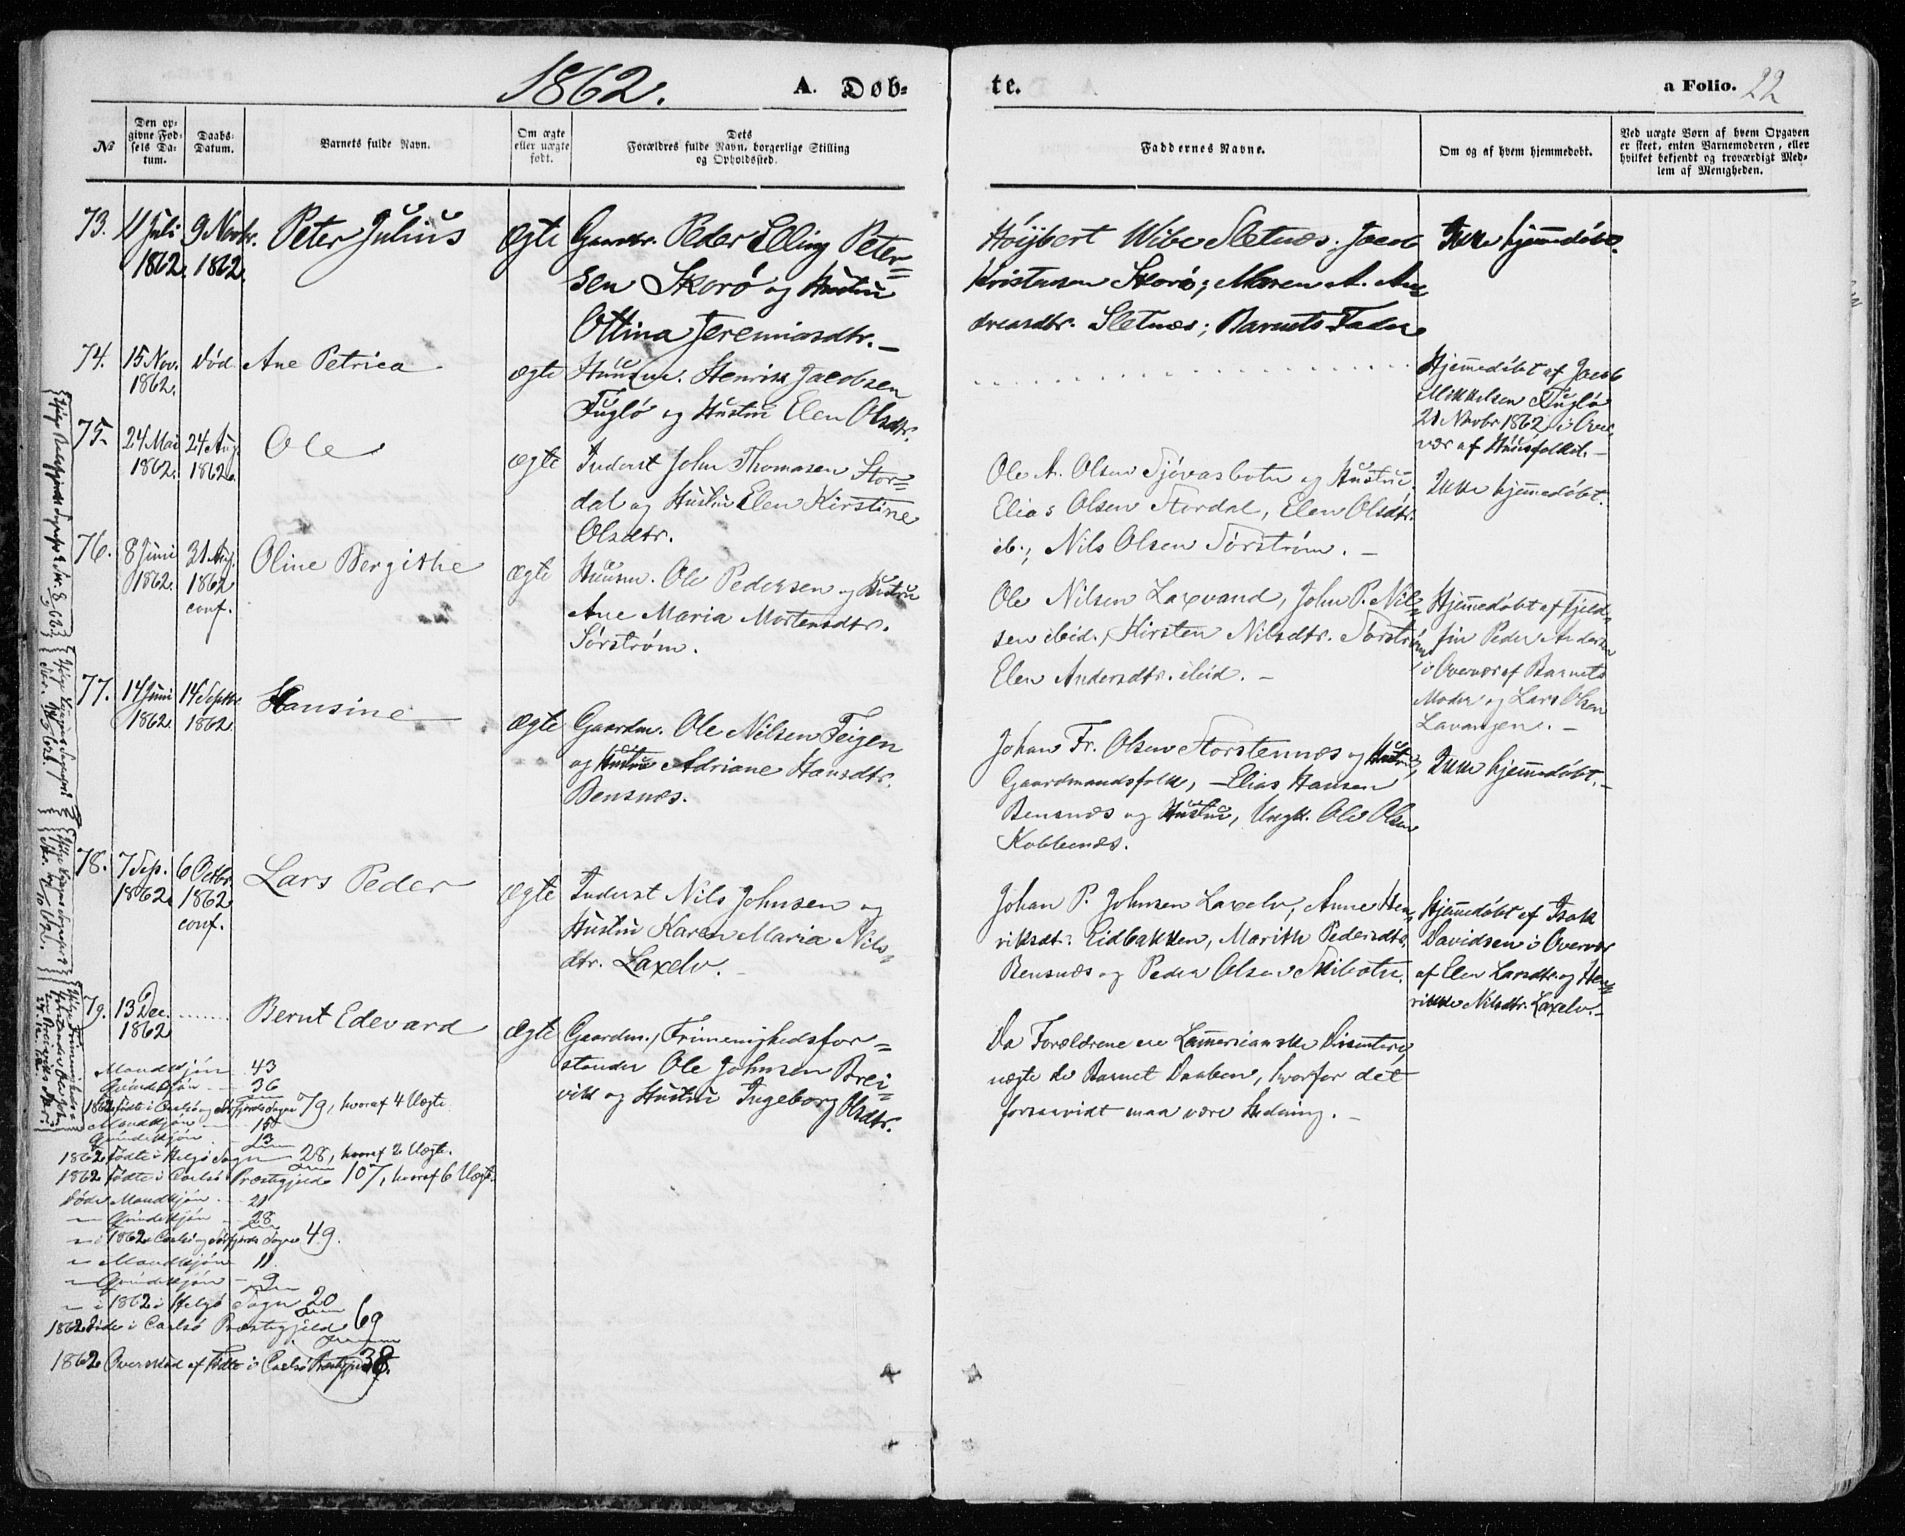 1862.
A. Døb-
te.
a Folio. 22
№
Den op-
givne Fød-
sels Da-
tum.
Daabs-
Datum.
Barnets fulde Navn.
Om ægte
eller uægte
født.
Dets
Forældres fulde Navn, borgerlige Stilling
og Opholdssted.
Faddernes Navne.
Om og af hvem hjemmedøbt.
Ved uægte Børn af hvem Opgaven
er skeet, enten Barnemoderen, eller
hvilket bekjendt og troværdigt Med-
lem af Menigheden.
73.
11 Juli
1862.
9 Novbr.
1862.
Peter Julius
Ægte
Gaardbr. Peder Elling Peter-
sen Skorø og Hustru
Ottina Jeremiasdtr. —
Høijbert Wibe Sletnæs; Jacob
Kristensen Skorø; Maren A. An-
dreasdtr. Sletnæs; Barnets Fader
Ikke hjemmedøbt.
74.
15 Nov.
1862.
Død
Ane Petrica
ægte
Huusm. Henrik Jacobsen
Fuglø og Hustru Elen Olsdtr.
Hjemmedøbt af Jacob
Mikkelsen Fuglø
21 Novbr 1862 i Over
vær af Huusfolket. —
75.
24 Mai
1862.
24 Aug.
1862.
Ole
ægte
Inderst John Thomasen Stor-
dal og Hustru Elen Kirstine
Olsdtr.
Ole A. Olsen Sjøvasbotn og Hustru,
Elias Olsen Stordal, Elen Olsdtr.
ib., Nils Olsen Sørstrøm. —
Ikke hjemmedøbt.
76.
8 Juni
1862.
31 Aug.
1862
conf.
Oline Bergithe
Ægte
Huusm. Ole Pedersen og Hustru
Ane Maria Mortensdtr.
Sørstrøm.
Ole Nilsen Laxvand, John P. Nil-
sen ibid., Kirsten Nilsdtr. Sørstrøm
Elen Andersdtr. ibid. —
Hjemmedøbt af Fjeld-
fin Peder Andersen
i Overvær af Barnets
Moder og Lars Olsen
Lavangen. —
77.
14 Juni
1862.
14 Septbr.
1862.
Hansine
Ægte
Gaardm. Ole Nilsen Teigen
og Hustru Adriane Hansdtr.
Bensnæs.
Johan Fr. Olsen Storstennæs og Hustru,
Gaardmandsfolk, — Elias Hansen
Bensnæs og Hustru, Ungk. Ole Olsen
Kobbenæs.
Ikke hjemmedøbt. —
78.
7 Sep.
1862.
6 Octbr.
1862
conf.
Lars Peder
Ægte
Inderst Nils Johnsen og
Hustru Karen Maria Nils-
dtr. Laxelv. —
Johan P. Johnsen Laxelv, Anne Hen-
riksdt. Eidbakken, Marith Pedersdtr.
Bensnæs og Peder Olsen Skibotn.
Hjemmedøbt af Isak
Davidsen i Overvær
af Elen Larsdtr. og Hen-
rikke Nilsdtr. Laxelv. —
79.
13 Dec.
1862
Bernt Edevard
Ægte
Gaardm., Frimenighedsfor-
stander Ole Johnsen Brei-
vik og Hustru Ingeborg Olsdtr.
Da Forældrene ere Lammerianske Dissentere,
nægte de Barnet Daaben, hvorfor det
forsaavidt maa være Hedning. —
Mandkjøn 43
Qvindekjøn 36
1862 fødte i Carlsø og Sørfjords Sogne 79, hvoraf 4 Uægte.
Mandkjøn 15
Qvindekjøn 13
1862 fødte i Helgø Sogn 28, hvoraf 2 Uægte.
1862 fødte i Carlsø Præstegjeld 107, hvoraf 6 Uægte.
Døde Mandkjøn 21
— Qvindekjøn 28
— i 1862 i Carlsø og Sørfjords Sogne 49.
— Mandkjøn 11
— Qvindekjøn — 9
— i 1862 i Helgø Sogn 20
1862 døde i Carlsø Præstegjeld 69
1862 Overskud af Fødte i Carlsø Præstegjeld 38.